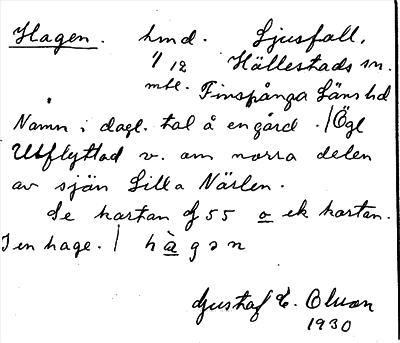 Hagen. hmd. Ljusfall.
1/12 Hällestads sn.
mtl. Finspånga Läns hd
Namn i dagl. tal å en gård. / Ögl
Utflyttad v. om norra delen
av sjön Lilla Närlen.
Se kartan 55 o ek kartan.
I en hage. / hàgən
Gustaf E. Olson
1930